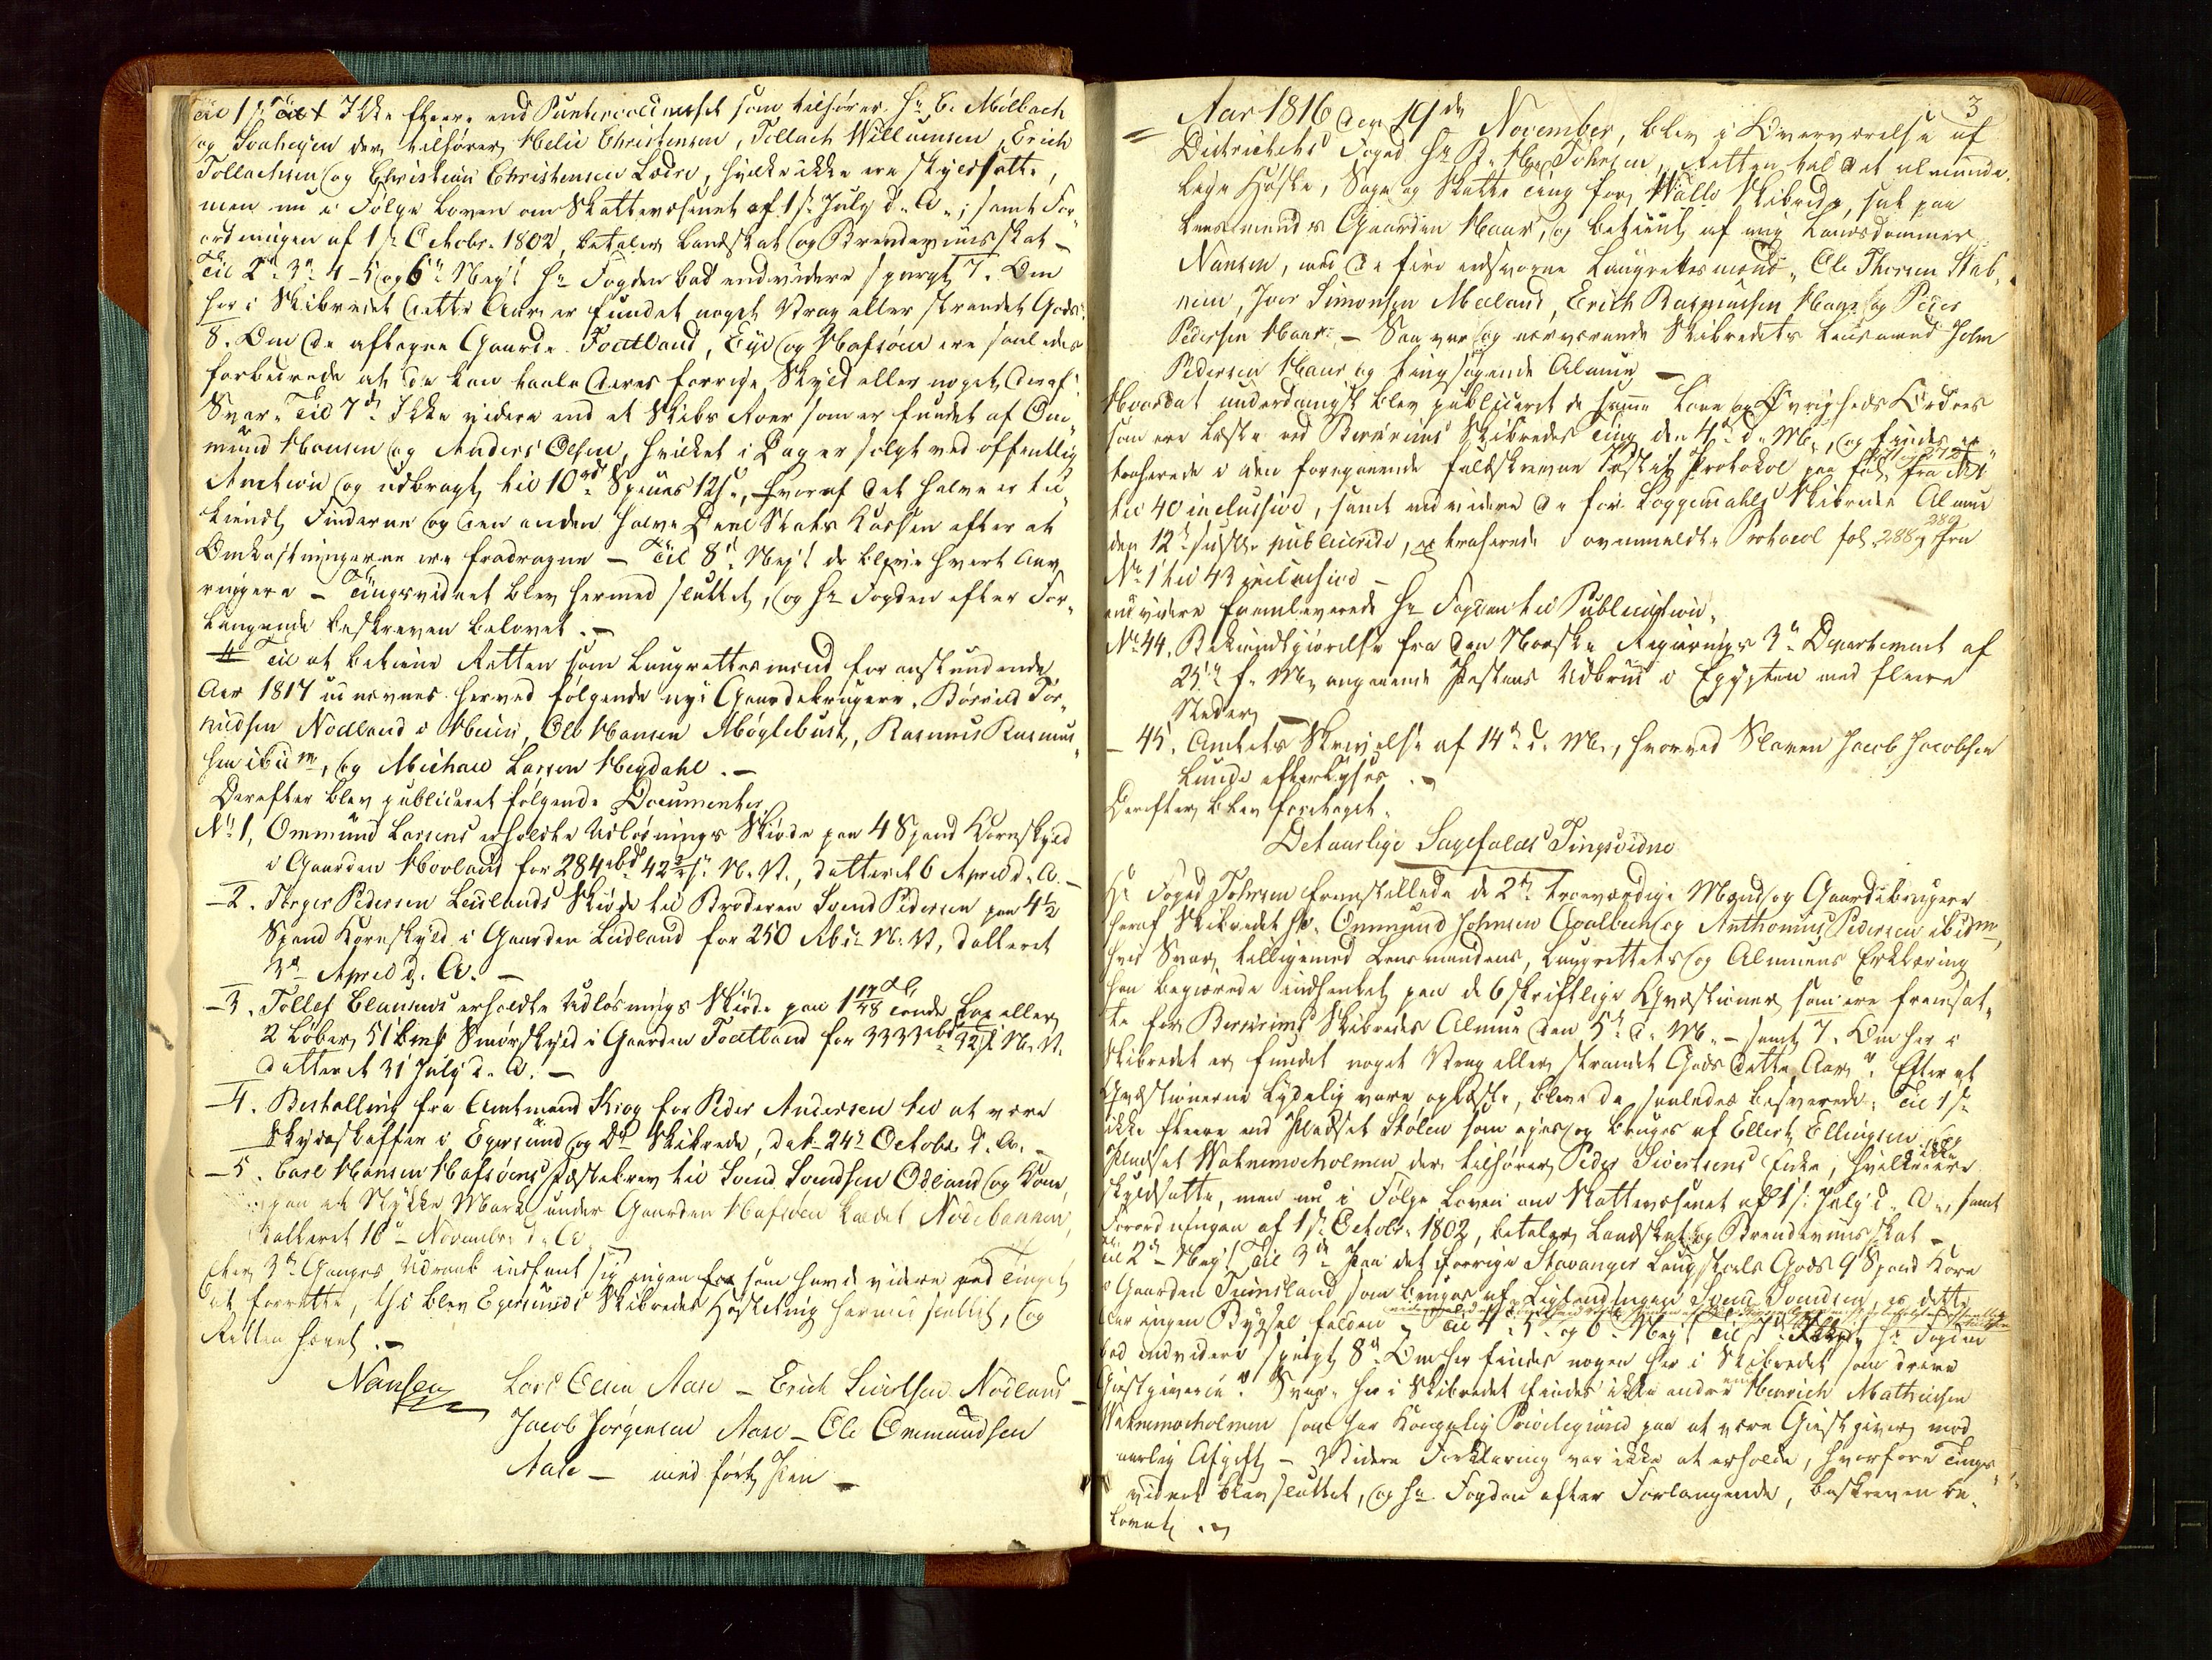 Til 1ste Ikke fleere end Puntervoldmesset som tilhører Hr C. Mølbach
og Svaheyen der tilhører Helie Christensen, Tollach Willumsen, Erich
Tollachsen og Christian Christensen Lædre, hvilke ikke ere skyldsatte,
men nu i Følge Loven om Skattevæsenet af 1ste July d. A.; samt For-
ordningen af 1ste Octobr. 1802, betaler Landskat og Brendeviinsskat –
Til 2den 3de 4 – 5 og 6te Neyt Hr Fogden bad endvidere spurgt 7. Om
her i Skibredet dette Aar er fundet noget Vrag eller strandet Gods.
8. Om de aftagne Gaarde Foetland, Eye og Hafsøen ere saaledes
forbedrede at de kan taale deres forrige Skyld eller noget deraf.
Svar. Til 7de Ikke videre end et Skibs Roer som er fundet af Om-
mund Hansen og Anders Olsen, hvilket i Dag er solgt ved offentlig
Auction og udbragt til 10rd Species 12s, hvoraf det halve er til-
kiendt Finderne og den anden halve Deel Stats Kassen efter at
Omkostningerne ere fradragne – Til 8de Neyt de bleve hvert Aar
ringere – Tingsvidnet blev hermed sluttet, og Hr Fogden efter For-
langende beskreven belovet. –
Til at betiene Retten som Laugrettesmænd for anstundende
Aar 1817 udnævnes herved følgende nye Gaardebrugere. Børrild Tor-
kildsen Nodland i Heien, Ole Hansen Møglebust, Rasmus Rasmus-
sen ibidm, og Michael Larsen Hegdahl. –
Derefter blev publiceret følgende Documenter
No 1, Ommund Larsens erholdte Udløsnings Skiøde paa 4 Spand Kornskyld
i Gaarden Hovland for 284rbd 42 s. N. V., datteret 6 April d. A. –
– 2. Tørger Pedersen Leidlands Skiøde til Broderen Svend Pedersen paa 4½
Spand Kornskyld i Gaarden Leidland for 250 Rbd N. V, datteret
3de April d. A. –
– 3. Tollef Clausens erholdte Udløsnings Skiøde paa 1 Tønde Lax eller
2 Løber, 51 bmk Smørskyld i Gaarden Foetland for 3333rbd 32s N. V.
datteret 31 July d. A. –
– 4. Bestalling fra Amtmand Krog for Peder Andersen til at være
Skydsskaffer i Egersund og Do Skibrede, dat. 24de Octobr. d. A. –
– 5. Carl Hansen Hafsøens Fæstebrev til Svend Svendsen Odland og Kone,
paa et Stykke Mark under Gaarden Hafsøen kaldet Nødebakken,
datteret 16de Novembr. d. A.
Efter 3de Ganges Udraab indfant sig ingen som havde videre ved Tinget
at forrette, thi blev Egersunds Skibredes Høsteting hermed sluttet, og
Retten hævet. –
Nansen Lars Olsen Aase – Erich Sivertsen Nodland –
Jacob Jørgensen Aase – Ole Ommundsen
Aase – med ført Pen –
3
Aar 1816 den 19de November, blev i Overværelse af
Districtets Foged Hr P. Tohrsen, Retten sat det almunde-
lige Høste, Sage og Skatte Ting for Walls Skibrede, sat paa
Lensmands Gaarden Haar, og betient af mig Landsdommer
Nansen, med de fire edsvorne Laugrettesmænd, Ole Thorsen Stab-
, Iver Simonsen Meeland, Erich Rasmussen Haar og Peder
Pedersen Haar. – Saa var og nærværende Skibredets Lensmand John
Pedersen Haar og tingsøgende Almue –
Hvordat underdanigst blev publiceret de samme Love og Øvrigheds Ordres
som ere læste ved Birsriems Skibredes Ting den 4de d. M., og findes ex-
traherede i den foregaaende fuldskrevne Justits Protokol paa fol. fra No 1
til 40 inclusive, samt endvidere de for Soggendahls Skibredes Almue
den 12te sistl. publicerede, extraherede i ovenmeldte Protocol fol. 288, 289 fra
No 1 til 43 inclusive –
endvidere fremleverede Hr Fogden til Publication,
No 44. Bekiendtgiørelse fra den Norske Regierings 3de Departement af
25de f. M. angaaende Pestens Udbrud i Egypten med fleere
Steder –
– 45. Amtets Skrivelse af 14de d. M., hvorved Slaven Jacob Jacobsen
Lunde efterlyses. –
Derefter blev foretaget,
Det aarlige Sagefalds Tingsvidne
Hr Foged Tohrsen fremstillede de 2de troeværdige Mænd og Gaardebrugere
heraf Skibredet Sr. Ommund Johnsen Qvalbein og Anthonius Pedersen ibidm,
hvis Svar tilligemed Lensmandens, Laugrettets og Almuens Erklæring
han begierede indhentet paa de 6 skriftlige Qvæstioner som ere fremsat-
te for Birsriems Skibredes Almue den 5te d. M. – samt 7. Om her i
Skibredet er fundet noget Vrag eller strandet Gods dette Aar? Efter at
Qvæstionerne lydelig vare oplæste, bleve de saaledes besvarede: Til 1ste
ikke fleere end Pladset Stølen som eyes og bruges af Ellert Ellingsen, og
Pladset Watnemoeholmen der tilhører Peder Sivertsens Enke, hvilke ikke ere
skyldsatte, men nu i Følge Loven om Skattevæsenet af 1ste July d. A., samt
Forordningen af 1ste Octobr. 1802, betaler Landskat og Brendeviinsskat –
Til 2den Neyt Til 3de Paa det forrige Stavanger Laugstoels Gods 9 Spand Korn
i Gaarden Tuensland som bruges af Svend Svendsen, er dette
Aar ingen Bygsel falden – Til 4de 5te og 6te Neyt Til 7de Hr Fogden
bad endvidere spurgt 8de Om her findes nogen her i Skibredet som drive
Giestgiverie? Svar. her i Skibredet findes ikke andre end Henrich Mathiesen
Watnemoeholmen som har Kongelig Privilegium paa at være Giestgiver mod
aarlig Afgift – Videre Forklaring var ikke at erholde, hvorfore Tings-
vidnet blev sluttet, og Hr Fogden efter Forlangende, beskreven be-
lovet. –